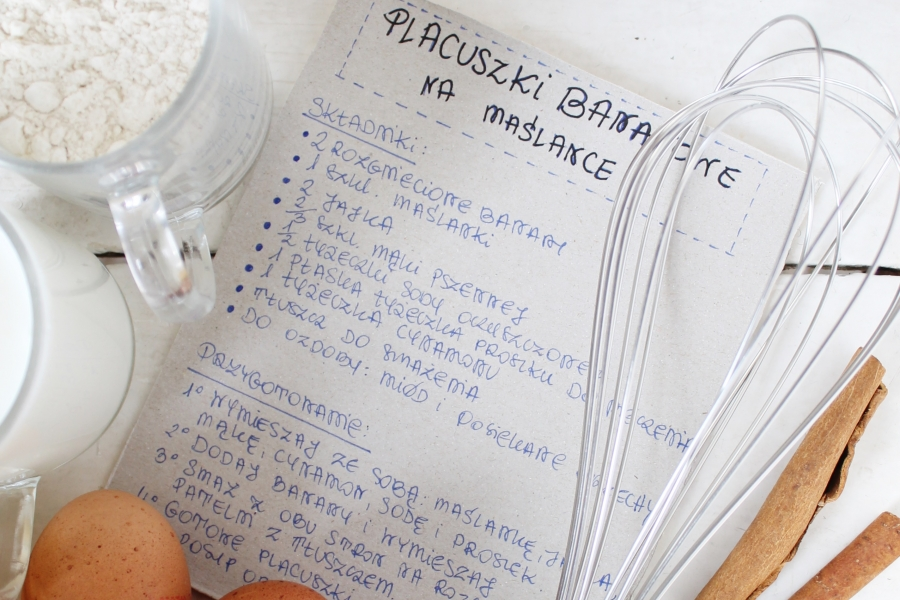 PLACUSZKI BANANOWE
NA MAŚLANCE
SKŁADNIKI:
• 2 ROZGNIECIONE BANANY
• 1 SZKL. MAŚLANKI
• 2 JAJKA
• 2 SZKL. MĄKI PSZENNEJ
• 1/3 ŁYŻECZKI SODY OCZYSZCZONEJ
• 1 PŁASKA ŁYŻECZKA PROSZKU DO PIECZENIA
• 1 ŁYŻECZKA CYNAMONU
• TŁUSZCZ DO SMAŻENIA
• DO OZDOBY: MIÓD i POSIEKANE ORZECHY
PRZYGOTOWANIE:
1° WYMIESZAJ ZE SOBĄ: MAŚLANKĘ,
MĄKĘ, CYNAMON, SODĘ i PROSZEK
2° DODAJ BANANY i WYMIESZAJ
3° SMAŻ Z OBU STRON NA
PATELNI Z TŁUSZCZEM.
4° GOTOWE PLACUSZKI
POSYP